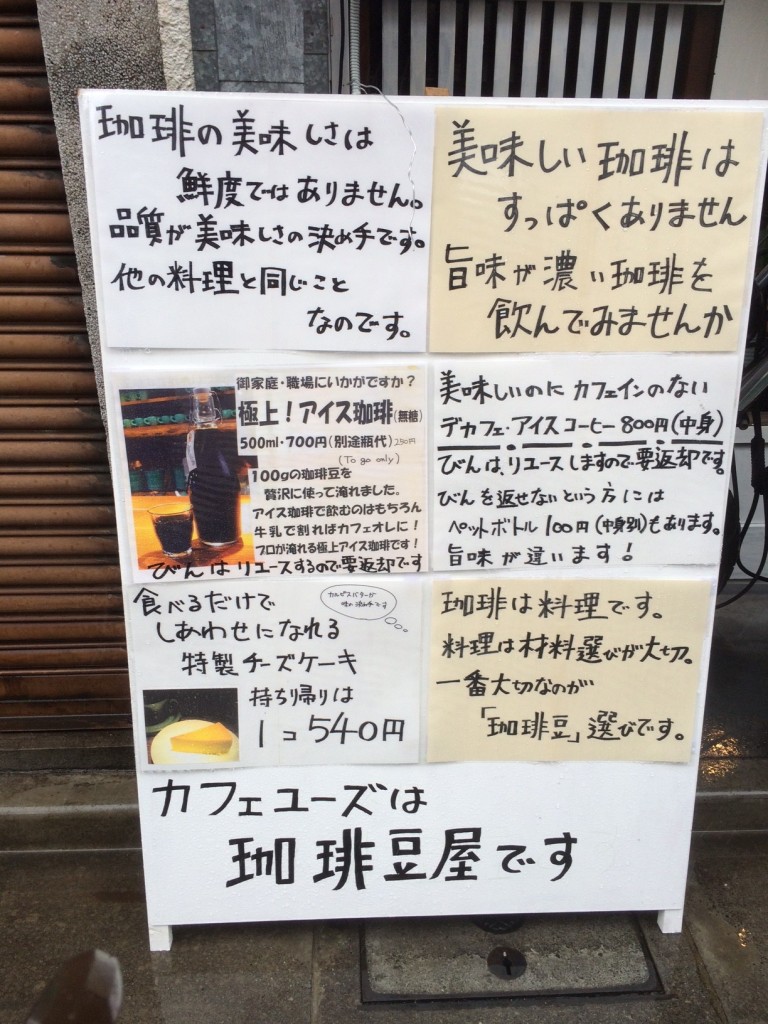 珈琲の美味しさは
鮮度ではありません。
品質が美味しさの決め手です。
他の料理と同じこと
なのです。
美味しい珈琲は
すっぱくありません
旨味が濃い珈琲を
飲んでみませんか
御家庭・職場にいかがですか？
極上！アイス珈琲(無糖)
500ml・700円(別途瓶代)250円
(To go only)
100gの珈琲豆を
贅沢に使って淹れました。
アイス珈琲で飲むのはもちろん
牛乳で割ればカフェオレに！
プロが淹れる極上アイス珈琲です！
びんはリユースするので要返却です
美味しいのにカフェインのない
デカフェ・アイスコーヒー800円(中身)
びんは、リユースしますので要返却です。
びんを返せないという方には
ペットボトル100円(中身別)もあります。
旨味が違います！
食べるだけで
しあわせになれる
特製チーズケーキ
カルピスバターが
味の決め手です
持ち帰りは
1コ540円
珈琲は料理です。
料理は材料選びが大切。
一番大切なのが
「珈琲豆」選びです。
カフェユーズは
珈琲豆屋です